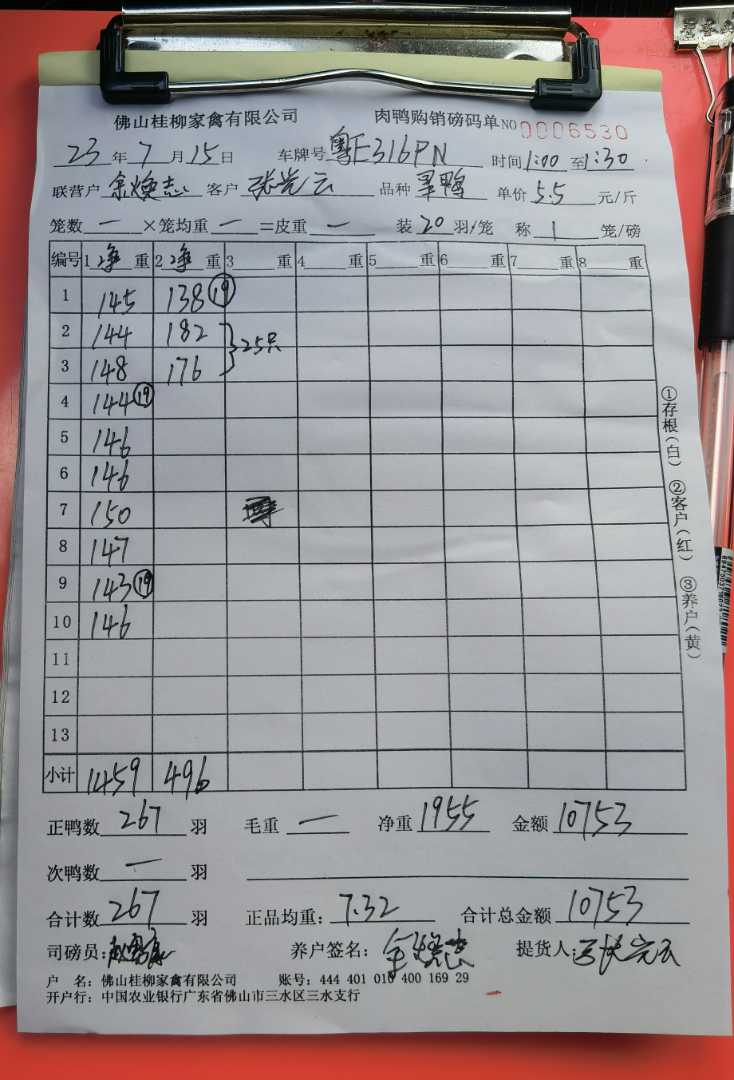 佛山桂柳家禽有限公司 肉鸭购销磅码单 NO 0006530
23 年 7 月 15 日 车牌号 粤E316PN 时间 1:00 至 1:30
联营户 余焕志 客户 张先云 品种 旱鸭 单价 5.5 元/斤
笼数 一 ×笼均重 一 =皮重 一 装 20 羽/笼 称 1 笼/磅
编号 1 净 重 2 净 重 3 重 4 重 5 重 6 重 7 重 8 重
1 145 138 ⑲
2 144 182 }25只
3 148 176
4 144 ⑲
5 146
6 146
7 150
8 147
9 143 ⑲
10 146
11
12
13
小计 1459 496
正鸭数 267 羽 毛重 一 净重 1955 金额 10753
次鸭数 一 羽
合计数 267 羽 正品均重: 7.32 合计总金额 10753
司磅员: 养户签名: 余焕志 提货人:
户 名: 佛山桂柳家禽有限公司 账号: 444 401 010 400 169 29
开户行: 中国农业银行广东省佛山市三水区三水支行
①存根(白) ②客户(红) ③养户(黄)